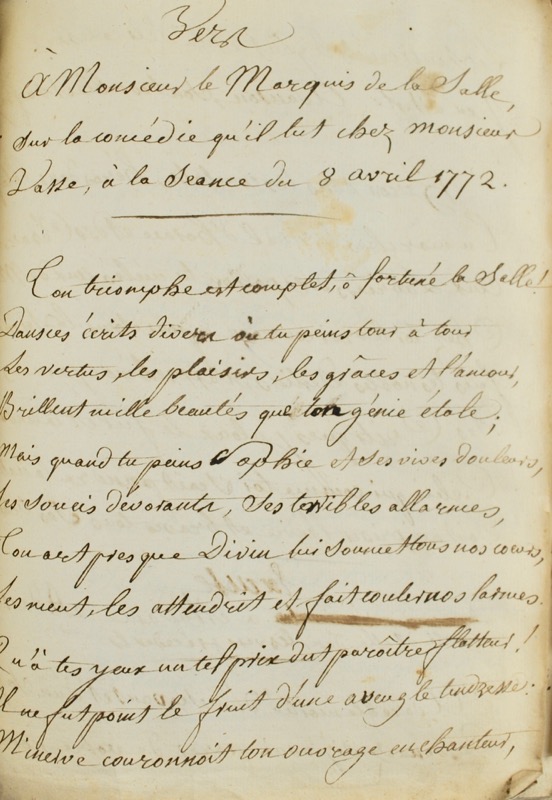 Vers
À Monsieur le Marquis de la Salle,
sur la comédie qu'il lut chez monsieur
Vasse, à la Seance du 8 avril 1772.
Ton triomphe est complet, ô fortuné la Salle!
Dans ces écrits divers où tu peins tour à tour
Les vertus, les plaisirs, les grâces et l'amour,
Brillent mille beautés que ton génie étale;
Mais quand tu peins Sophie et ses vives douleurs,
ses soucis dévorants, ses terribles allarmes,
Ton art presque Divin lui soumet tous nos coeurs,
les meut, les attendrit et fait couler nos larmes.
Qu'à tes yeux un tel prix dut paroître flatteur!
Il ne fut point le fruit d'une aveugle tendresse:
Minerve couronnoit ton ouvrage enchanteur,